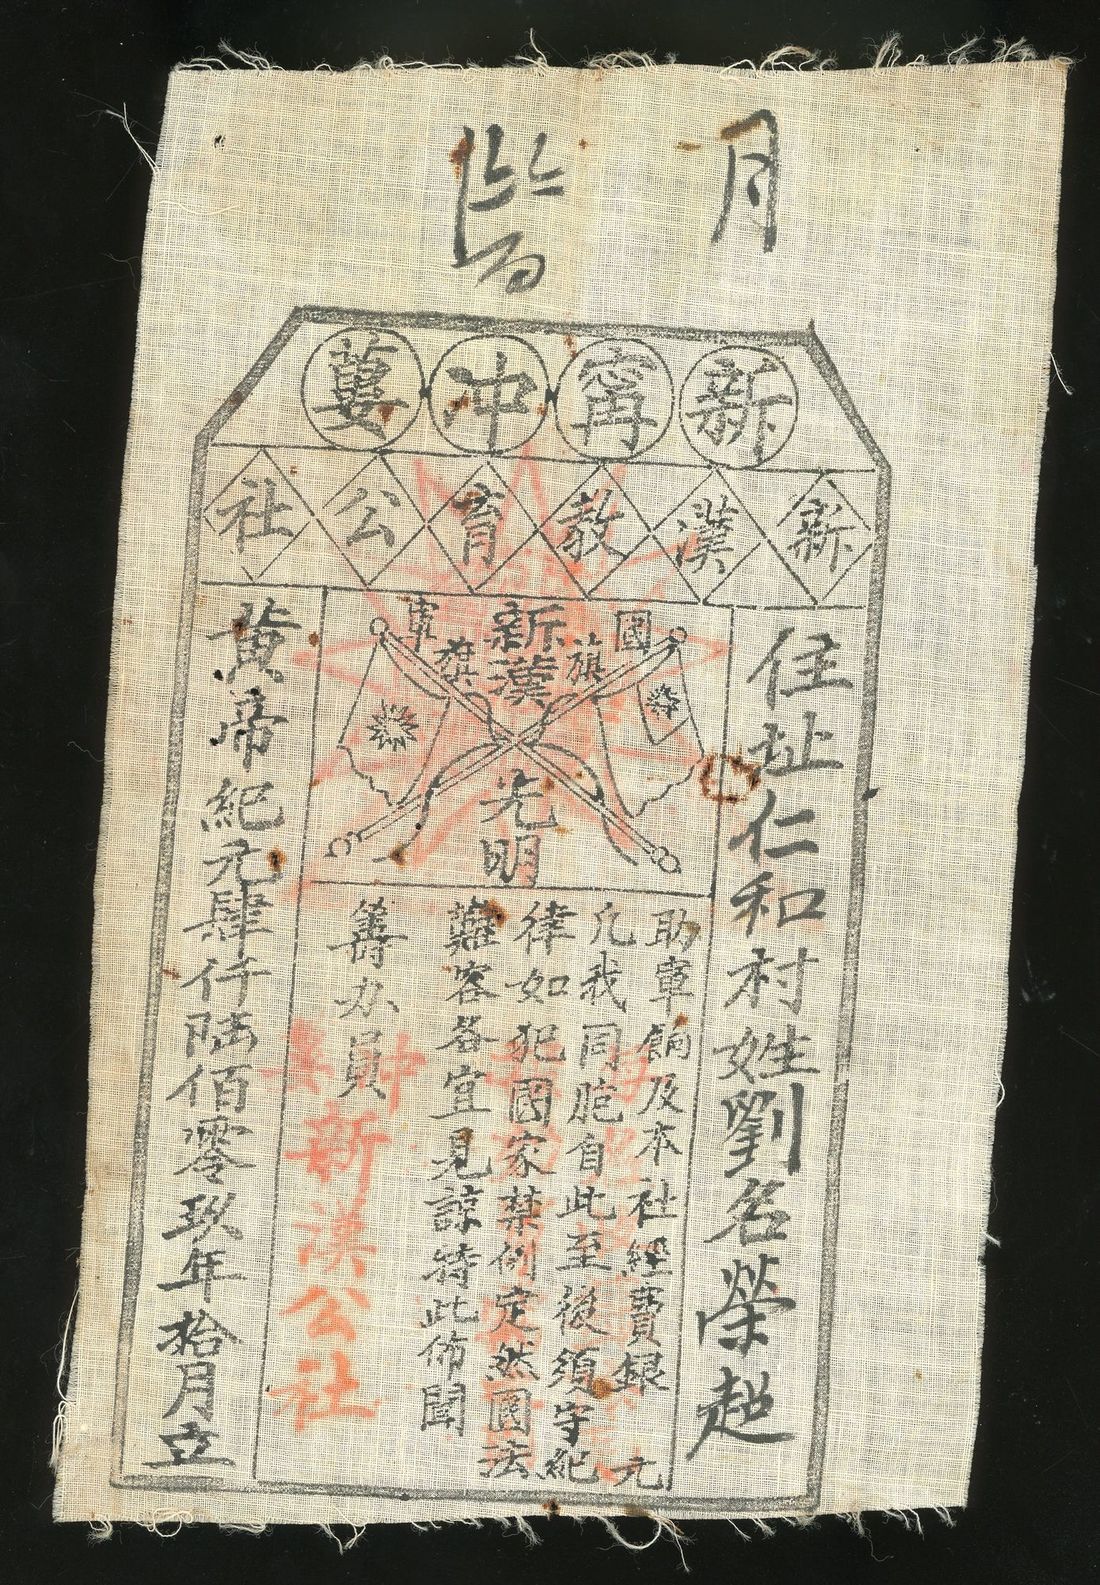 月
新寗冲蔞
新漢教育公社
住址仁和村姓劉名榮超
國旗
新漢
光明
軍旗
助軍餉及本社經費銀 元
凡我同胞自此至後須守紀
律如犯國家禁例定然國法
難容各宜見諒特此佈聞
籌办員
新漢公社
黃帝紀元肆仟陆佰零玖年拾月立